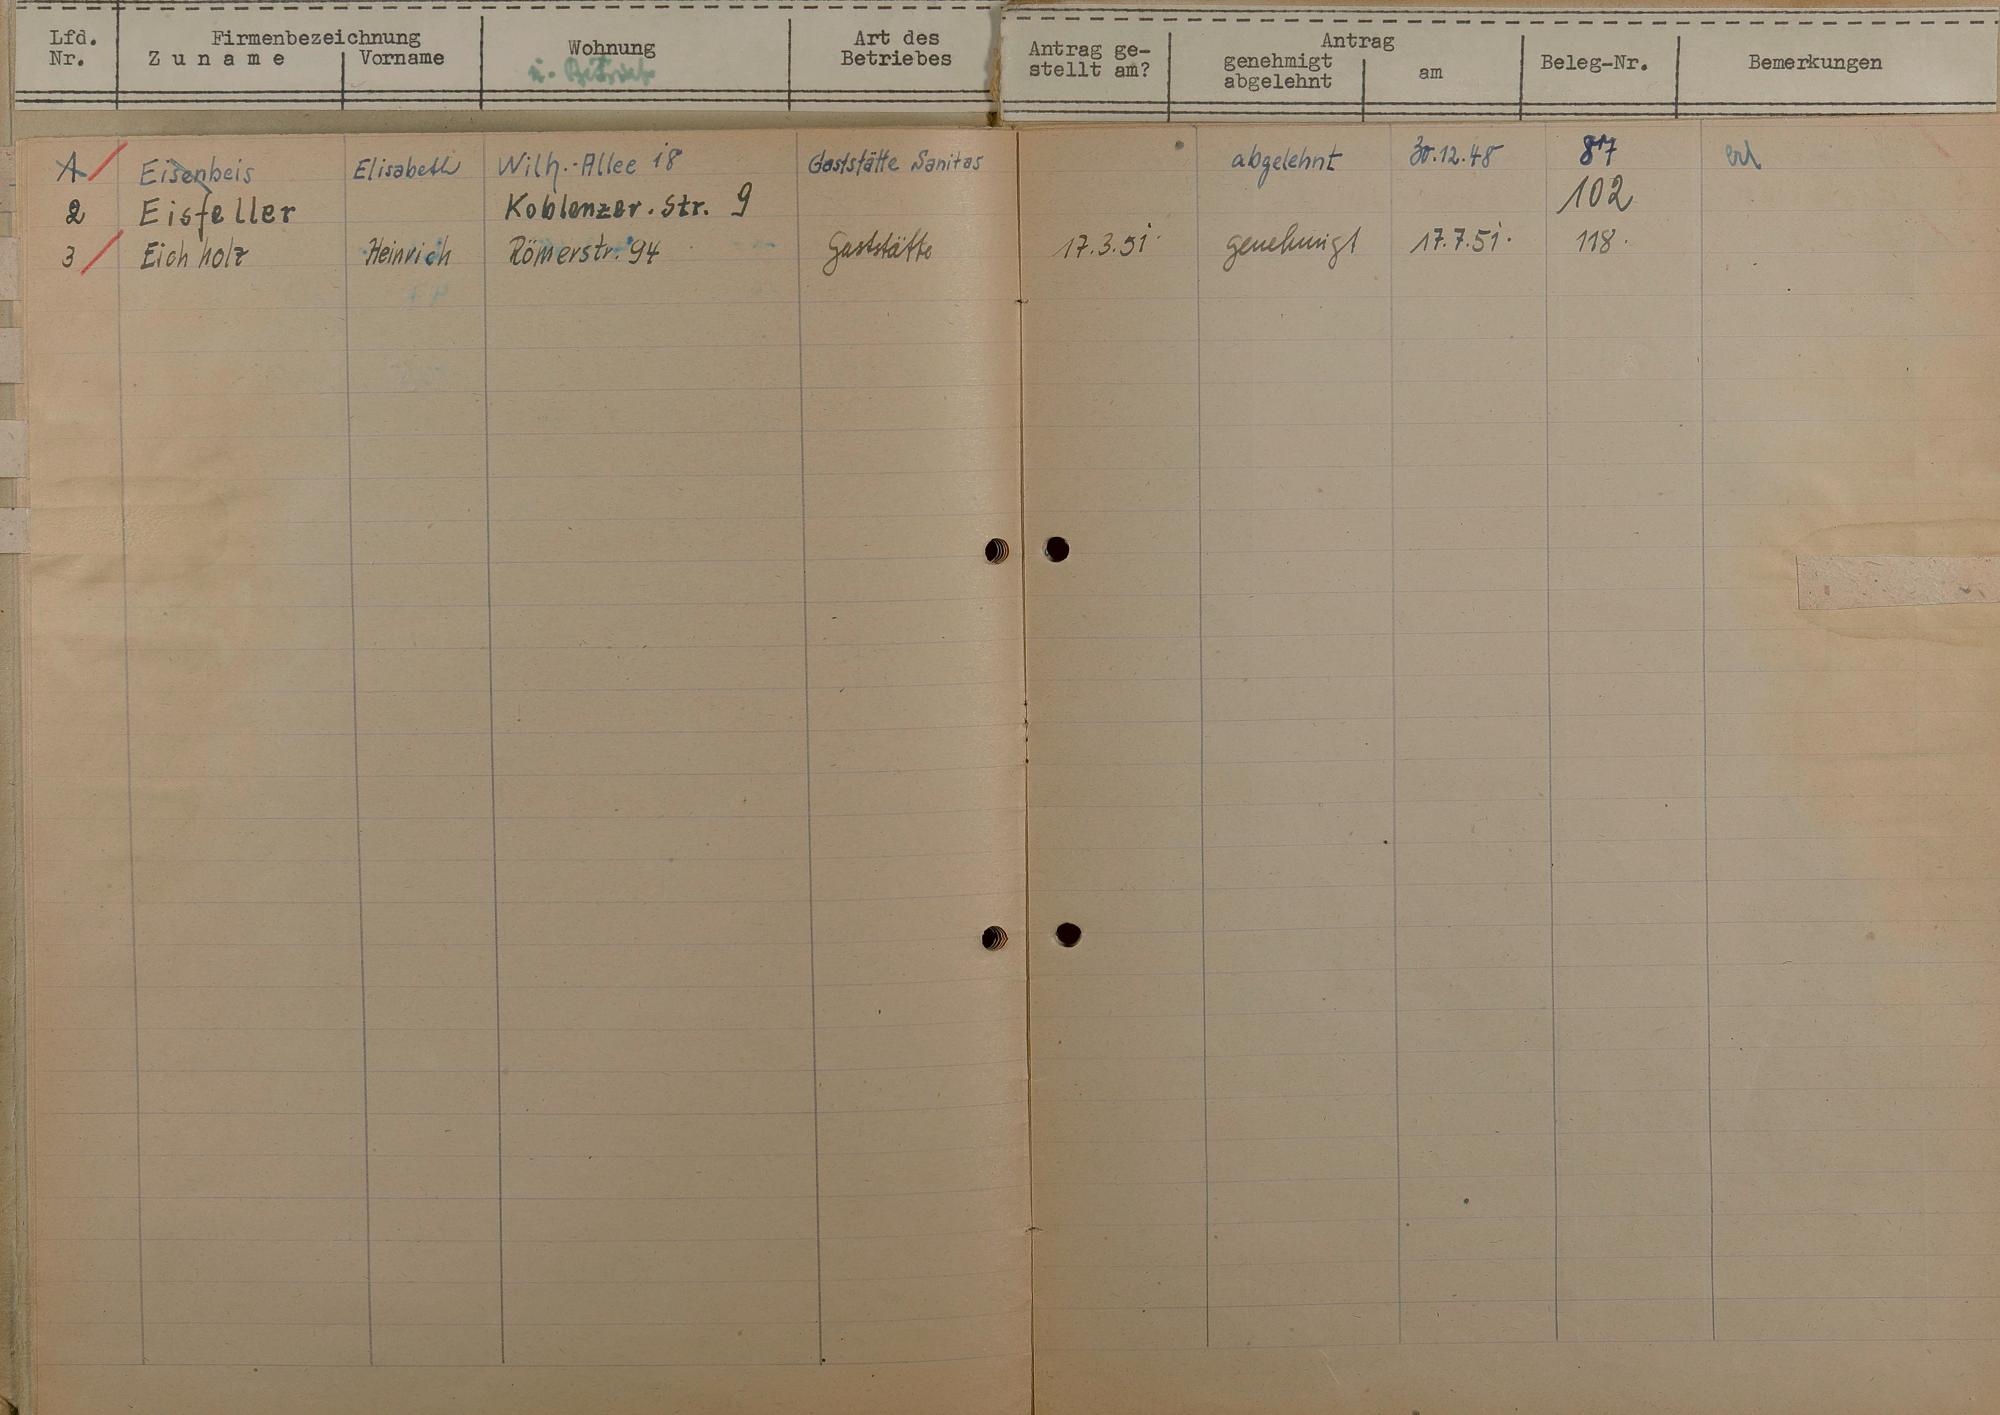 Lfd. Nr. Firmenbezeichnung Zuname Vorname Wohnung u. Betrieb Art des Betriebes Antrag gestellt am? Antrag genehmigt abgelehnt am Beleg-Nr. Bemerkungen
1 Eisenbeis Elisabeth Wilh.-Allee 18 Gaststätte Sanitas abgelehnt 30.12.48 817 erl
2 Eisfeller Koblenzer. Str. 9 102
3 Eichholz Heinrich Römerstr. 94 Gaststätte 17.3.51. genehmigt 17.7.51. 118.